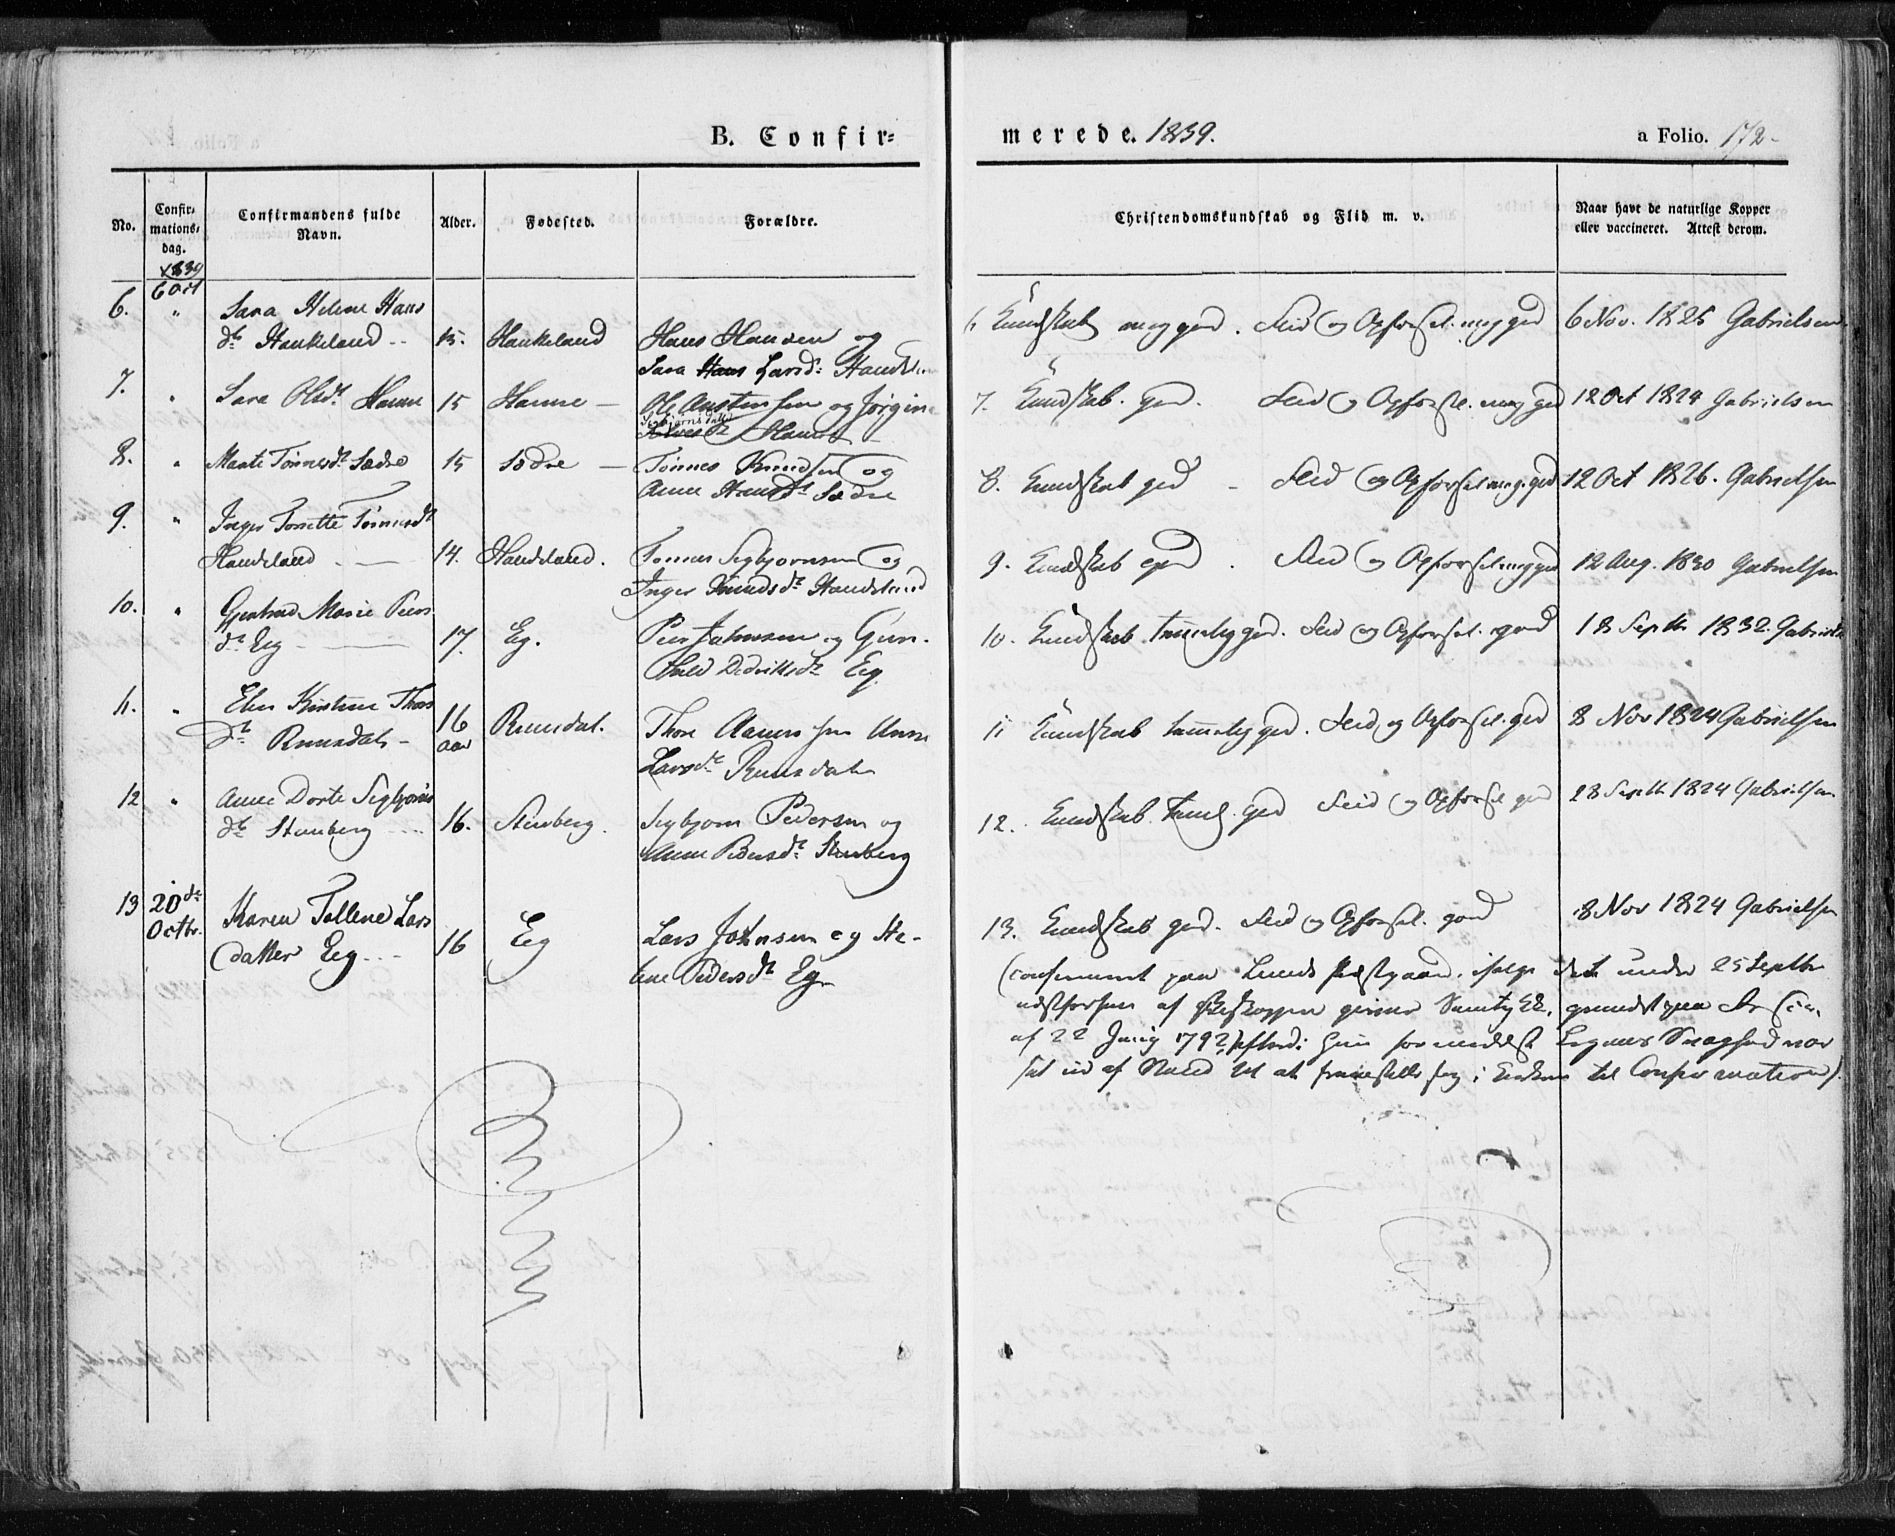 B. Confir=
merede. 1839.
a Folio. 172-
No.
Confir=
mations=
dag.
Confirmandens fulde
Navn.
Alder.
Fødested.
Forældre.
Christendomskundskab og Flid m. v.
Naar havt de naturlige Kopper
eller vaccineret. Attest derom.
1839
6 Oct
6. " Sara Helene Hans
dtr Haukeland 15. Haukeland Hans Hansen og
Sara Larsd:
6. Kundskab meg god. Flid og Opførsel. meg god 6 Nov. 1825 Gabrielsen
7. " Sara Olsdtr Hamre 15 Hamre — Ole Austensen og Jørgine
Sigbjørnsdatter
Hamre
7. Kundskab. god. Flid og Opførsel. meg god 12 Oct 1824 Gabrielsen
8. " Marte Tønnesdtr Sædre 15 Sædre — Tønnes Knudsen og
Anne Hansdtr Sædre
8. Kundskab god - Flid og Opførsel meg. god 12 Oct 1826. Gabrielsen
9. " Inger Tonette Tønnesdtr
Haudeland 14. Haudeland. Tønnes Sigbjørnsen og
Inger Knudsdtr Haudeland
9. Kundskab god. Flid og Opførsel meg god 12 Aug. 1830 Gabrielsen
10. " Gjertrud Marie Peers
dtr Eeg 17. Eg. Peer og Gun-
hild Didriksdtr Eeg.
10. Kundskab temmelig god. Flid og Opførsel. god 18 Septbr 1832. Gabriels
11. " Elen Kirstine Thors
dtr Ruusdal - 16
aar Ruusdal. Thore Aanensen Anne
Larsdtr Ruusdal
11 Kundskab temmelig god. Flid og Opførsel. god 8 Nov 1824 Gabrielsen
12 " Anne Dorte Sigbjørns
dtr Stenberg 16. Stenberg. Sigbjørn Pedersen og
Anne Pedersdtr Stenberg
12. Kundskab. Teml. god Flid og Opførsel god 28 Septb 1824 Gabrielsen
13 20de
Octbr. Karen Tolline Lars
datter Eeg 16 Eeg Lars Johnsen og He-
lene Pedersdtr Eg.
13. Kundskab god. Flid og Opførsel. god 8 Nov 1824 Gabrielsen
(confirmeret paa Lunds Præstgaard. ifølge det under 25 Septbr
af Biskoppen givne Samtykke, grundet paa
af 22 Juny 1792, efterdi hun formedelst Legems Svaghed var
sat ud af Stand til at fremstille sig i Kirken til Confirmation).